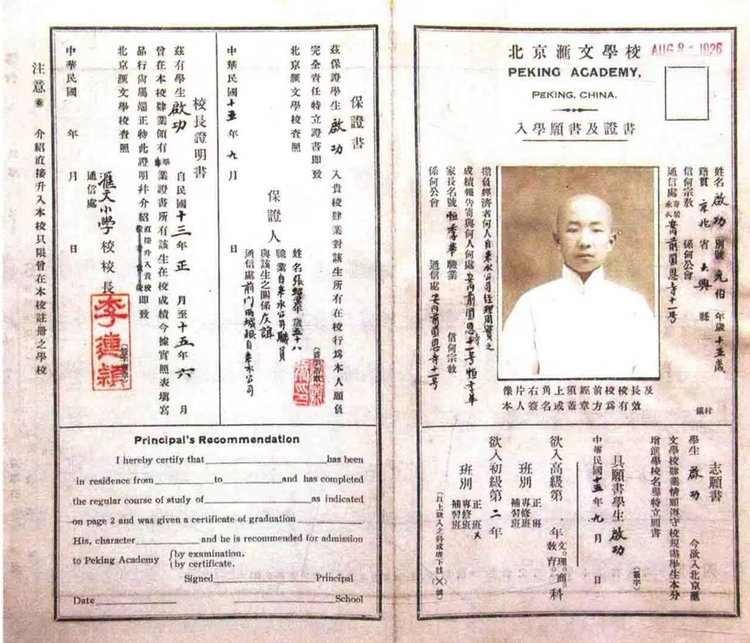 北京滙文學校
AUG 8 - 1926
PEKING ACADEMY,
PEKING, CHINA.
入學願書及證書
姓名 啟功 別號 元伯 年歲 十五歲
籍貫 京兆 省 大興 縣 鎮村
信何宗教 係何公會
通信處 永久 安內前國恩寺十一号
像片右角上須經前校長及
本人簽名或蓋章方有效
擔負經濟者何人 自來水公司經理周實之
成績報告寄與何人何處 安內前國恩寺十一号恒季華
家長名號 恒季華 職業 信何宗教
係何公會 通信處 安內前國恩寺十一号
志願書
學生 啟功 今欲入北京滙
文學校肄業情願遵守校規盡學生本分
增進學校名譽特立願書
具願書學生 啟功 (簽字)
中華民國 十五 年 九 月 日
欲入高級第 年 文。理。商。教育。科
班別 正班 專修班 補習班
欲入初級第 二 年
班別 正班 X 專修班 補習班
保證書
茲保證學生 啟功 入貴校肄業對該生所有在校行為本人願負
完全責任特立證書即致
北京滙文學校查照
保證人
姓名 張紹 年歲 五十八
職業 自來水公司職員
與該生之關係 友誼
通信處 前門內 城根自來水公司
中華民國 十五 年 九 月 日
校長證明書
茲有學生 啟功 自民國 十三 年 正 月至 十五 年 六 月
曾在本校肄業領有畢業證書所有該生在校成績今據實照表填寫
品行尚屬端正特此證明并介紹直接升入貴校即致
北京滙文學校查照
滙文小學 校校長 李連穎
通信處
中華民國 年 月 日
注意 介紹直接升入本校只限曾在本校註冊之學校
Principal's Recommendation
I hereby certify that has been
in residence from to and has completed
the regular course of study of as indicated
on page 2 and was given a certificate of graduation
His, character and he is recommended for admission
to Peking Academy {by examination.
{by certificate.
Signed Principal
Date School